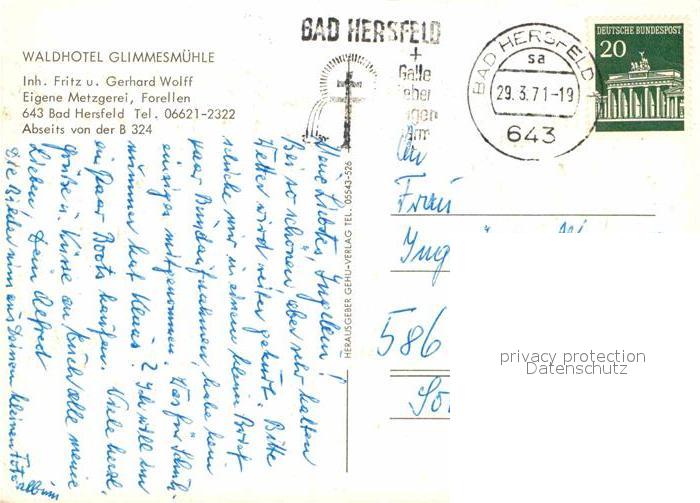 WALDHOTEL GLIMMESMÜHLE
Inh. Fritz u. Gerhard Wolff
Eigene Metzgerei, Forellen
643 Bad Hersfeld Tel. 06621-2322
Abseits von der B 324
BAD HERSFELD
Galle
Leber
Magen
Darm
BAD HERSFELD 1
sa
29.3.71-19
643
DEUTSCHE BUNDESPOST
20
HERAUSGEBER GEHU-VERLAG TEL. 05543-526
Mein Liebstes Ingelein!
Bei so schönen, aber sehr kalten
Wetter wird weiter gekurt. Bitte
schicke mir in einem kleinen Brief
paar Bundaufnahmen, habe kein
einziges mitgenommen. Was für Schuh-
nummer hat Klaus? Ich will ihm
ein paar Boots kaufen. Viele herzl.
Grüße u. Küsse an Euch alle meine
Lieben, Dein Alfred
Die Bilder nimm aus Deinem kleinen Fotoalbum
An
Frau
Ing
586
privacy protection
Datenschutz